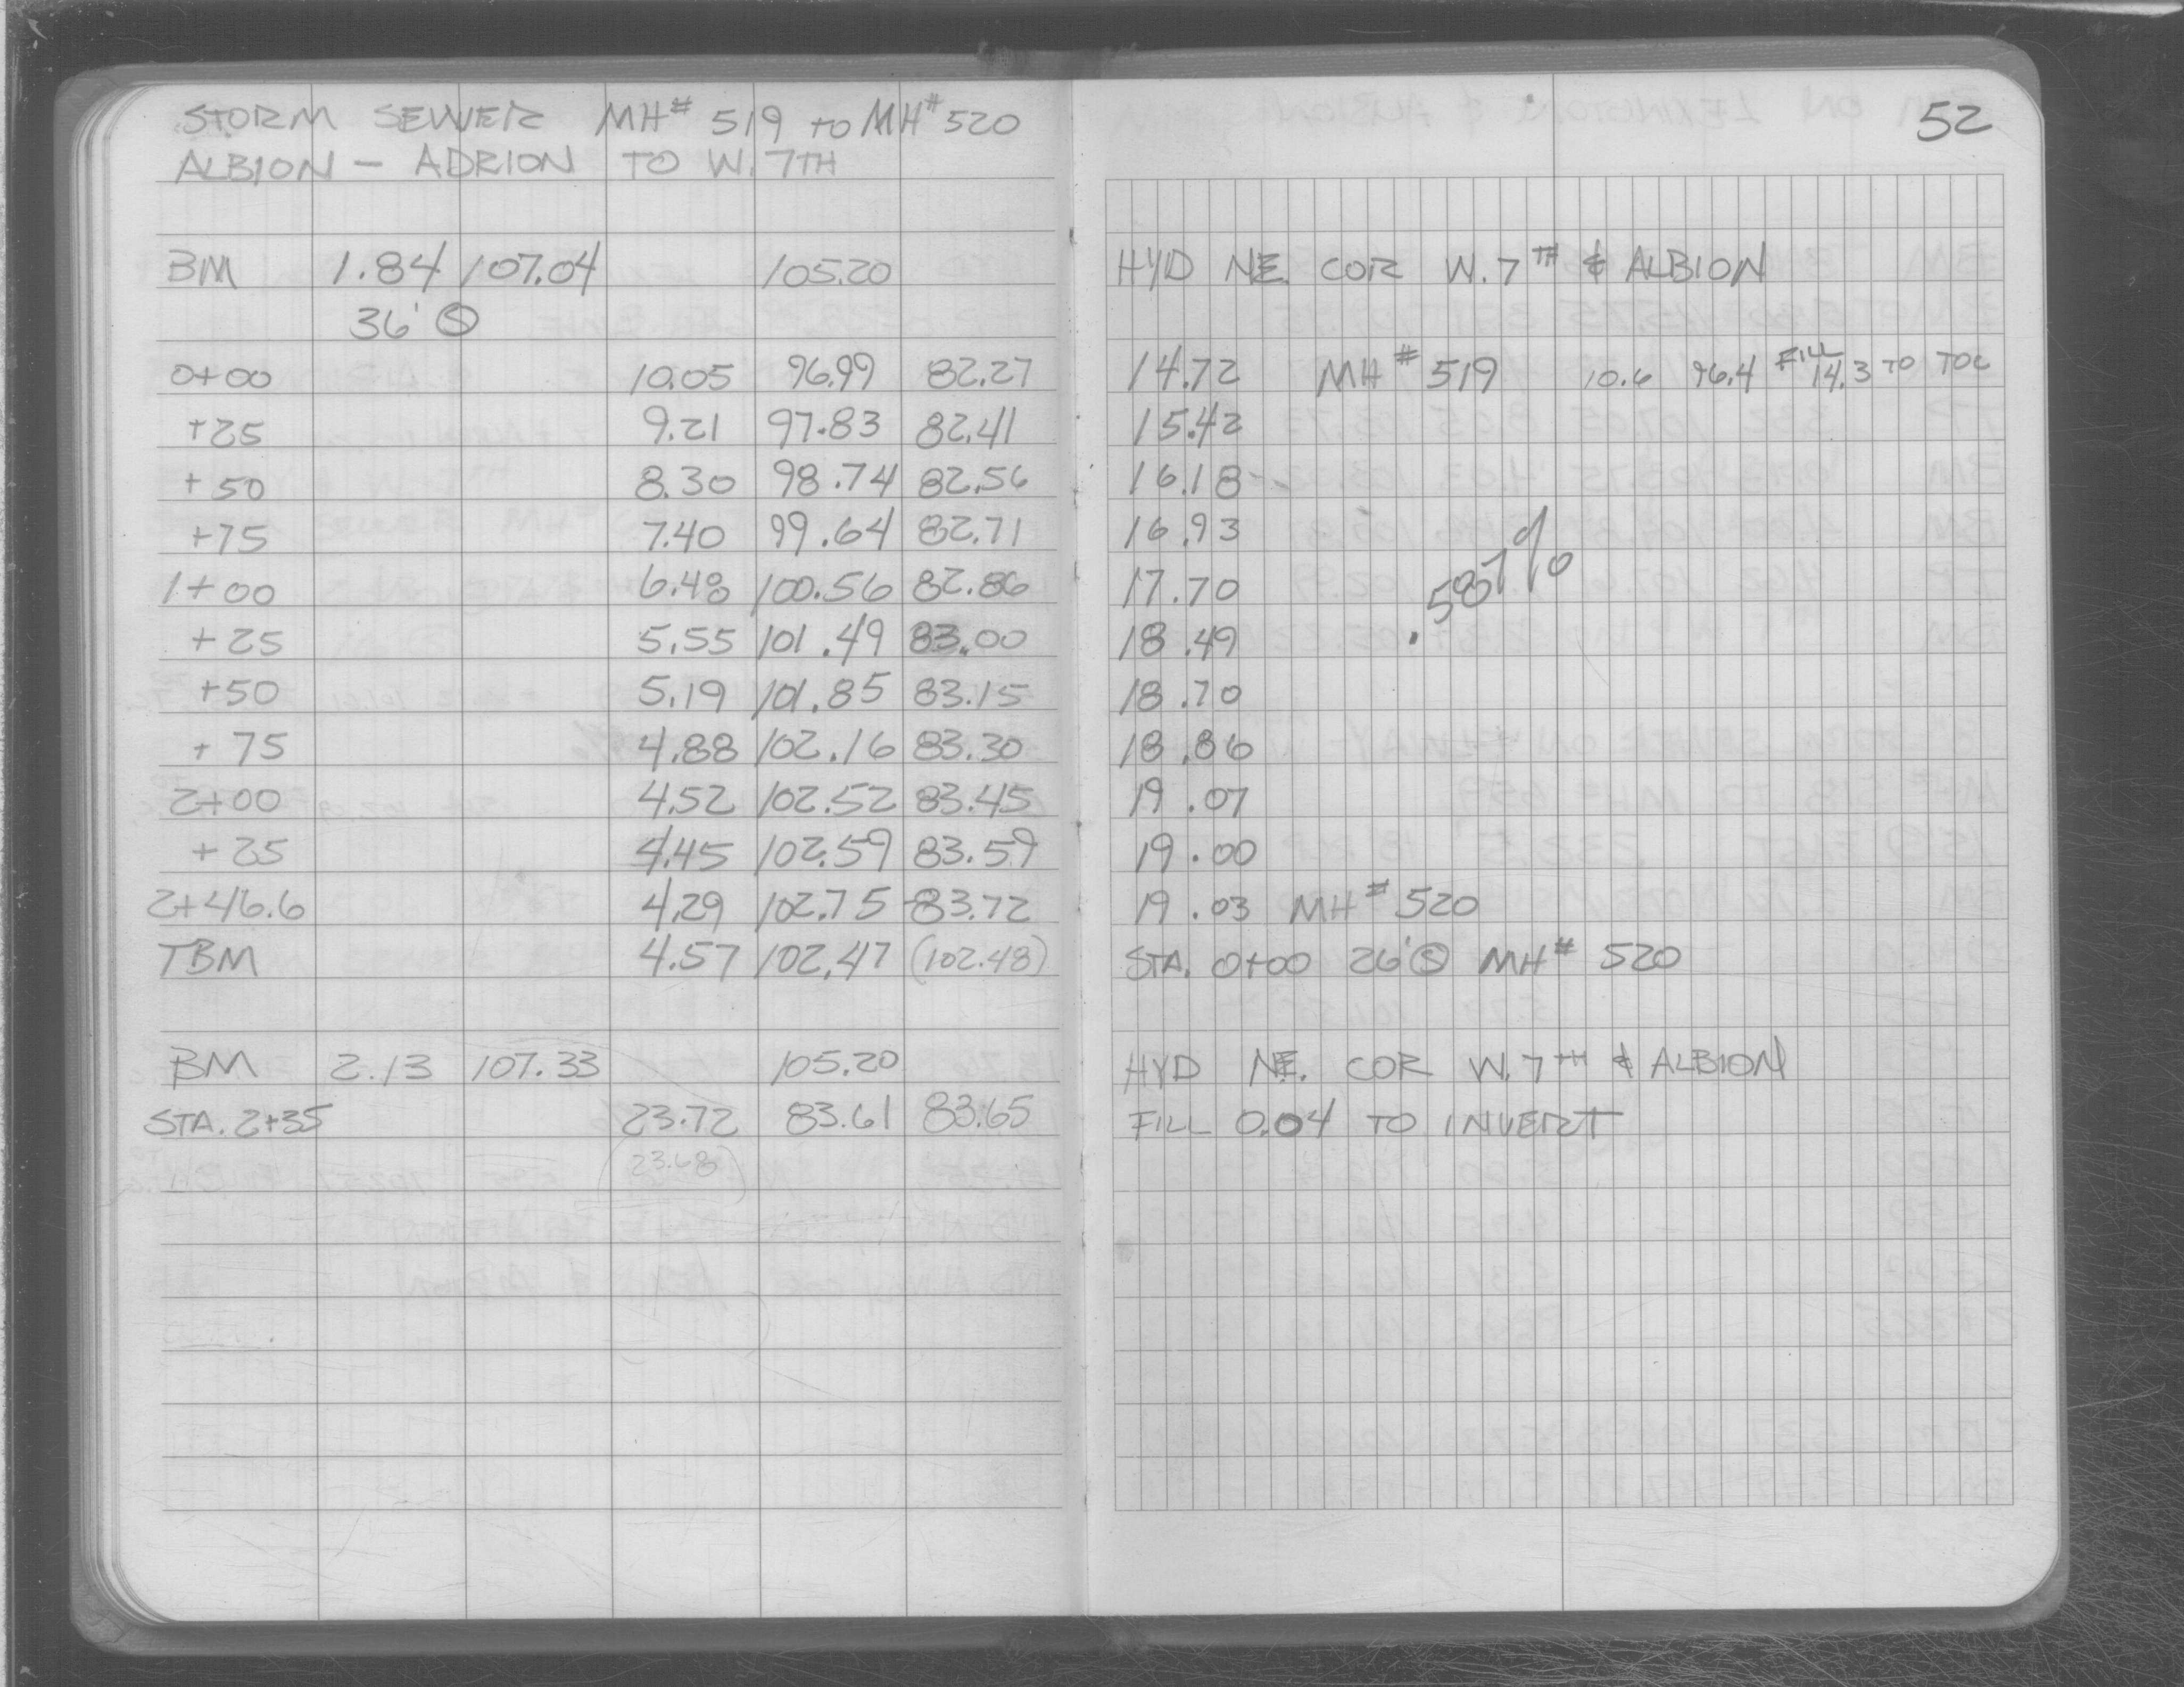 STORM SEWER MH# 519 TO MH# 520
ALBION - ADRION TO W. 7TH
BM 1.84 107.04 105.20
36' Ⓢ
0+00 10.05 96.99 82.27
+25 9.21 97.83 82.41
+50 8.30 98.74 82.56
+75 7.40 99.64 82.71
1+00 6.48 100.56 82.86
+25 5.55 101.49 83.00
+50 5.19 101.85 83.15
+75 4.88 102.16 83.30
2+00 4.52 102.52 83.45
+25 4.45 102.59 83.59
2+46.6 4.29 102.75 83.72
TBM 4.57 102.47 (102.48)
BM 2.13 107.33 105.20
STA. 2+35 23.72 83.61 83.65
(23.68)
52
HYD NE. COR W. 7TH & ALBION
14.72 MH# 519 10.6 96.4 FILL 14.3 TO TOC
15.42
16.18
16.93
17.70 .587%
18.49
18.70
18.86
19.07
19.00
19.03 MH# 520
STA. 0+00 26' Ⓢ MH# 520
HYD NE. COR W. 7TH & ALBION
FILL 0.04 TO INVERT